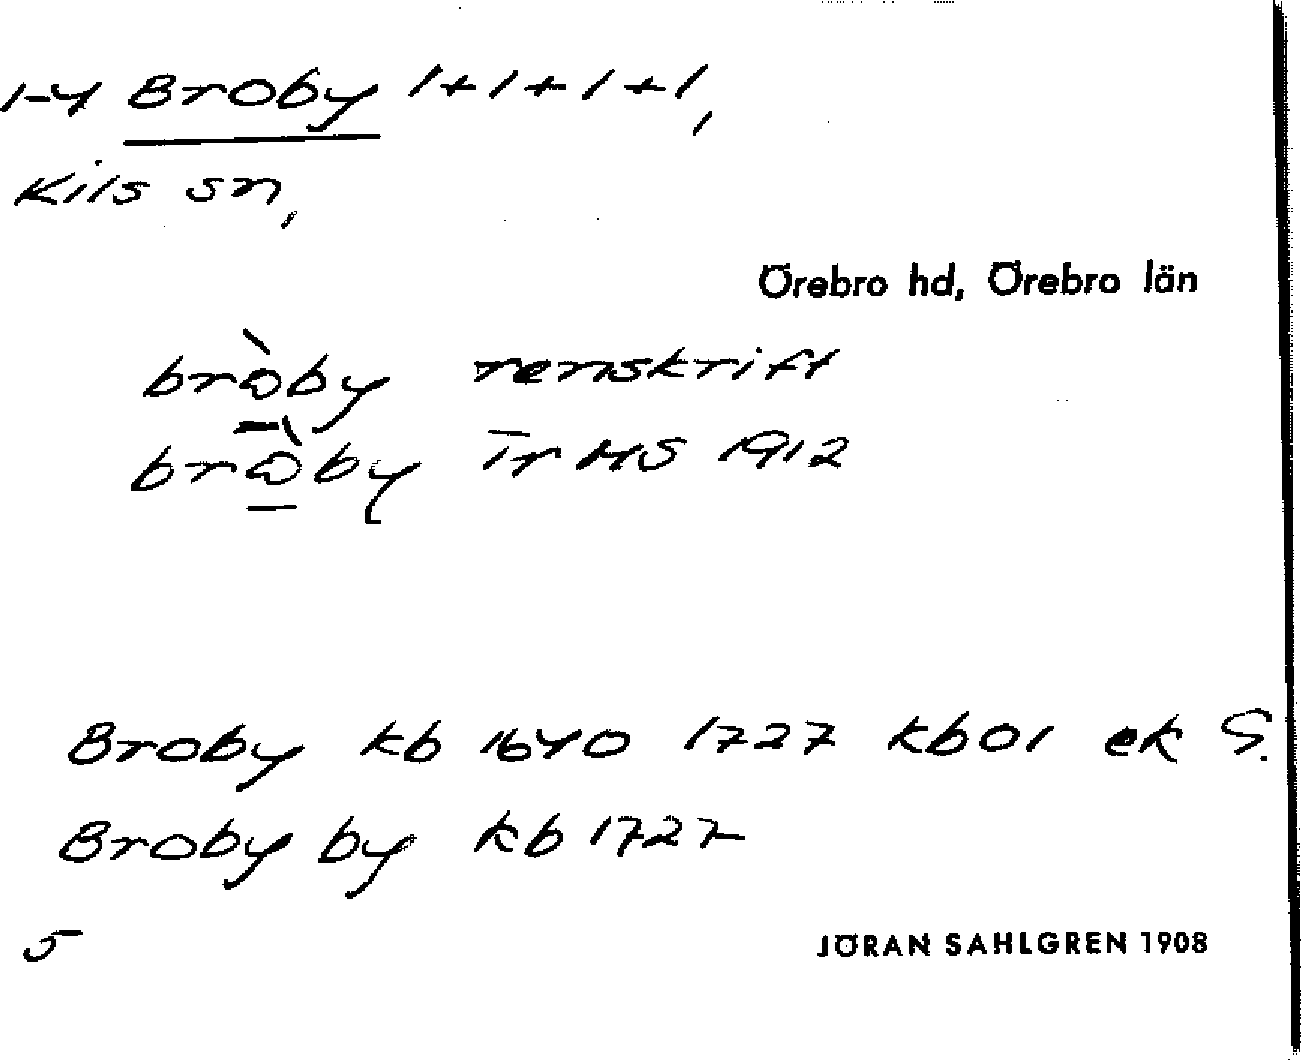 1-4 Broby 1+1+1+1,
Kils sn,
Örebro hd, Örebro län
bròby renskrift
bròby Tr MS 1912
Broby kb 1640 1727 kb01 ek S.
Broby by kb 1727
5
JÖRAN SAHLGREN 1908